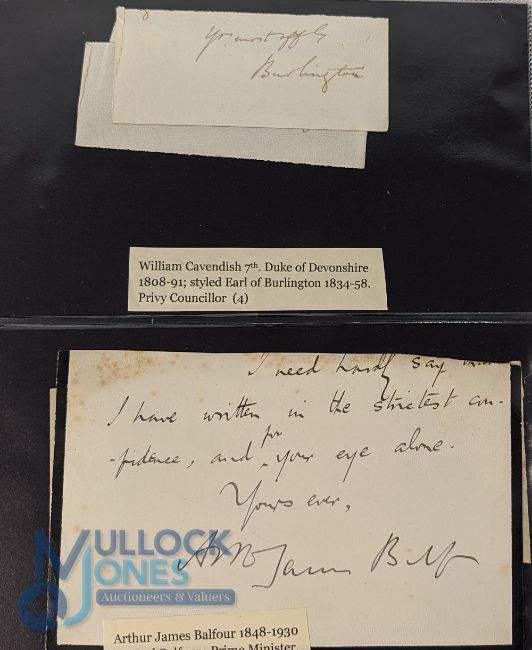 Yr. most affly
Burlington
William Cavendish 7th. Duke of Devonshire
1808-91; styled Earl of Burlington 1834-58.
Privy Councillor (4)
I need hardly say
I have written in the strictest con-
-fidence, and for your eye alone.
Yours ever,
Arthur James Balfour
MULLOCK
JONES
Auctioneers & Valuers
Arthur James Balfour 1848-1930
Balfour. Prime Minister